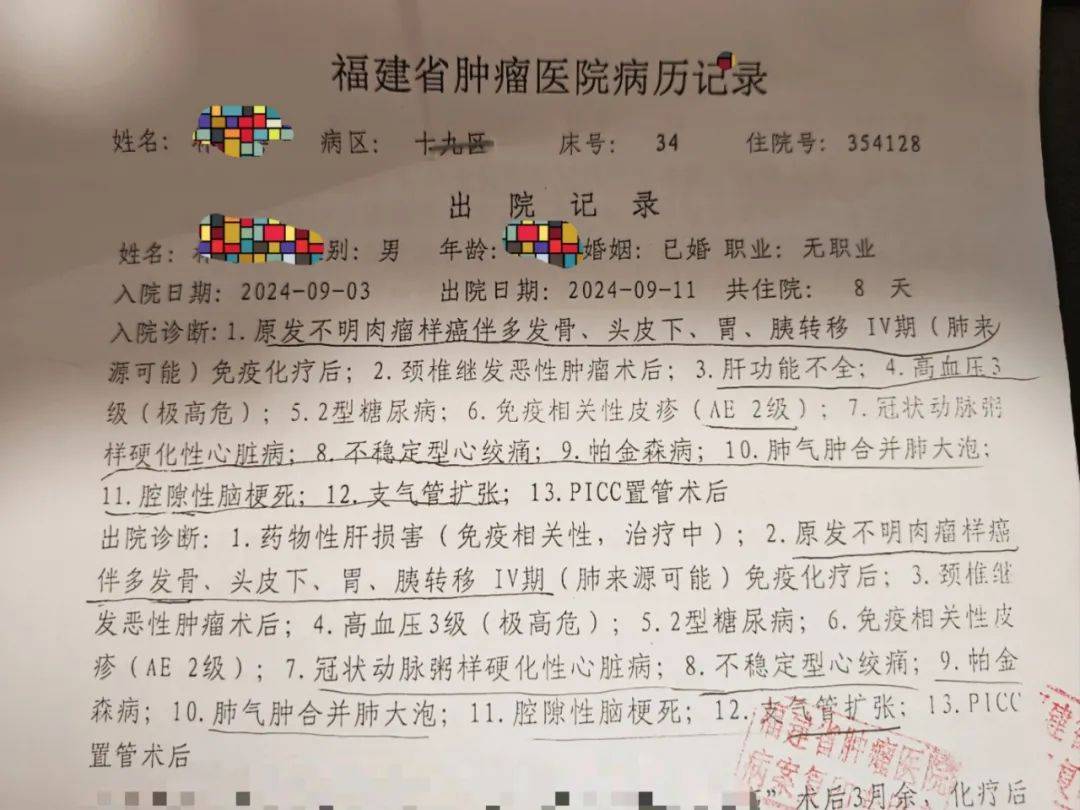 福建省肿瘤医院病历记录
姓名: 病区: 十九区 床号: 34 住院号: 354128
出 院 记 录
姓名: 别: 男 年龄: 婚姻: 已婚 职业: 无职业
入院日期: 2024-09-03 出院日期: 2024-09-11 共住院: 8 天
入院诊断: 1.原发不明肉瘤样癌伴多发骨、头皮下、胃、胰转移 IV期(肺来
源可能)免疫化疗后; 2.颈椎继发恶性肿瘤术后; 3.肝功能不全; 4.高血压3
级(极高危); 5.2型糖尿病; 6.免疫相关性皮疹(AE 2级); 7.冠状动脉粥
样硬化性心脏病; 8.不稳定型心绞痛; 9.帕金森病; 10.肺气肿合并肺大泡;
11.腔隙性脑梗死; 12.支气管扩张; 13.PICC置管术后
出院诊断: 1.药物性肝损害(免疫相关性, 治疗中); 2.原发不明肉瘤样癌
伴多发骨、头皮下、胃、胰转移 IV期(肺来源可能)免疫化疗后; 3.颈椎继
发恶性肿瘤术后; 4.高血压3级(极高危); 5.2型糖尿病; 6.免疫相关性皮
疹(AE 2级); 7.冠状动脉粥样硬化性心脏病; 8.不稳定型心绞痛; 9.帕金
森病; 10.肺气肿合并肺大泡; 11.腔隙性脑梗死; 12.支气管扩张; 13.PICC
置管术后
福建省肿瘤医院
病案复印
”术后3月余, 化疗后